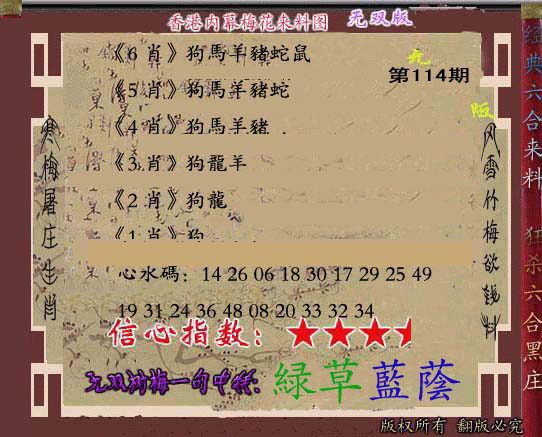 香港内幕梅花来料图 无双版
第114期
《6 肖》狗馬羊豬蛇鼠
《5 肖》狗馬羊豬蛇
《4 肖》狗馬羊豬
《3 肖》狗龍羊
《2 肖》狗龍
《1 肖》狗
心水碼：14 26 06 18 30 17 29 25 49
19 31 24 36 48 08 20 33 32 34
信心指数：★★★
无双狗梅一句中特：緑草藍蔭
寒梅屠庄生肖
风雪竹梅欲钱料
经典六合来料
狂杀六合黑庄
版权所有 翻版必究